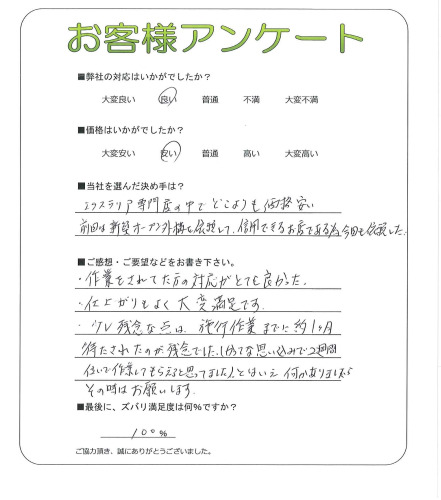 お客様アンケート
■弊社の対応はいかがでしたか？
大変良い 良い 普通 不満 大変不満
■価格はいかがでしたか？
大変安い 安い 普通 高い 大変高い
■当社を選んだ決め手は？
エクステリア専門店の中でどこよりも価格安い
前回は新築オープン外構を依頼して、信用できるお店である為今回も依頼した。
■ご感想・ご要望などをお書き下さい。
・作業をされてた方の対応がとても良かった。
・仕上がりもよく大変満足です。
・少し残念な点は、施行作業までに約1ヶ月
待たされたのが残念でした。(勝手な思い込みで2週間
位いで作業してもらえると思ってました)とはいえ何かありましたら
その時はお願いします。
■最後に、ズバリ満足度は何％ですか？
100％
ご協力頂き、誠にありがとうございました。